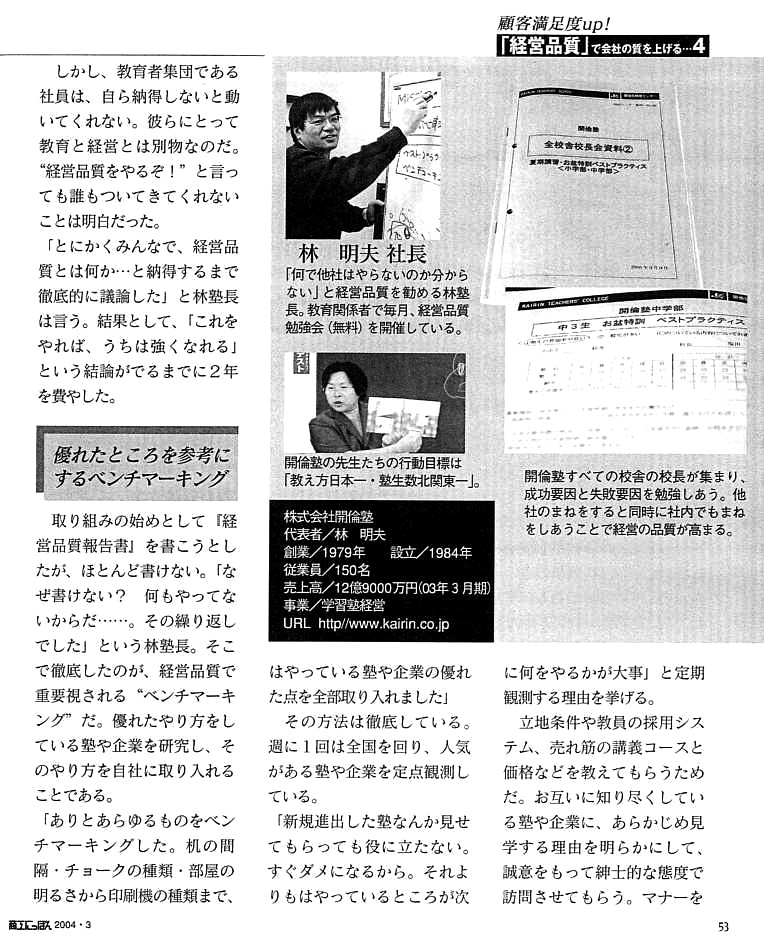 顧客満足度up!
「経営品質」で会社の質を上げる…4
しかし、教育者集団である
社員は、自ら納得しないと動
いてくれない。彼らにとって
教育と経営とは別物なのだ。
“経営品質をやるぞ！”と言っ
ても誰もついてきてくれない
ことは明白だった。
「とにかくみんなで、経営品
質とは何か…と納得するまで
徹底的に議論した」と林塾長
は言う。結果として、「これを
やれば、うちは強くなれる」
という結論がでるまでに２年
を費やした。
優れたところを参考に
するベンチマーキング
取り組みの始めとして『経
営品質報告書』を書こうとし
たが、ほとんど書けない。「な
ぜ書けない？　何もやってな
いからだ……。その繰り返し
でした」という林塾長。そこ
で徹底したのが、経営品質で
重要視される“ベンチマーキ
ング”だ。優れたやり方をし
ている塾や企業を研究し、そ
のやり方を自社に取り入れる
ことである。
「ありとあらゆるものをベン
チマーキングした。机の間
隔・チョークの種類・部屋の
明るさから印刷機の種類まで、
林　明夫 社長
「何で他社はやらないのか分から
ない」と経営品質を勧める林塾
長。教育関係者で毎月、経営品質
勉強会（無料）を開催している。
開倫塾の先生たちの行動目標は
「教え方日本一・塾生数北関東一」。
株式会社開倫塾
代表者／林　明夫
創業／1979年　　設立／1984年
従業員／150名
売上高／12億9000万円（03年３月期）
事業／学習塾経営
URL http//www.kairin.co.jp
KAIRIN TEACHERS' COLLEGE
開倫塾
全校舎校長会資料②
夏期講習・お盆特訓ベストプラクティス
＜小学部・中学部＞
KAIRIN TEACHERS' COLLEGE
開倫塾中学部
中３生　お盆特訓　ベストプラクティス
開倫塾すべての校舎の校長が集まり、
成功要因と失敗要因を勉強しあう。他
社のまねをすると同時に社内でもまね
をしあうことで経営の品質が高まる。
はやっている塾や企業の優れ
た点を全部取り入れました」
その方法は徹底している。
週に１回は全国を回り、人気
がある塾や企業を定点観測し
ている。
「新規進出した塾なんか見せ
てもらっても役に立たない。
すぐダメになるから。それよ
りもはやっているところが次
に何をやるかが大事」と定期
観測する理由を挙げる。
立地条件や教員の採用シス
テム、売れ筋の講義コースと
価格などを教えてもらうため
だ。お互いに知り尽くしてい
る塾や企業に、あらかじめ見
学する理由を明らかにして、
誠意をもって紳士的な態度で
訪問させてもらう。マナーを
商工にっぽん 2004・3
53